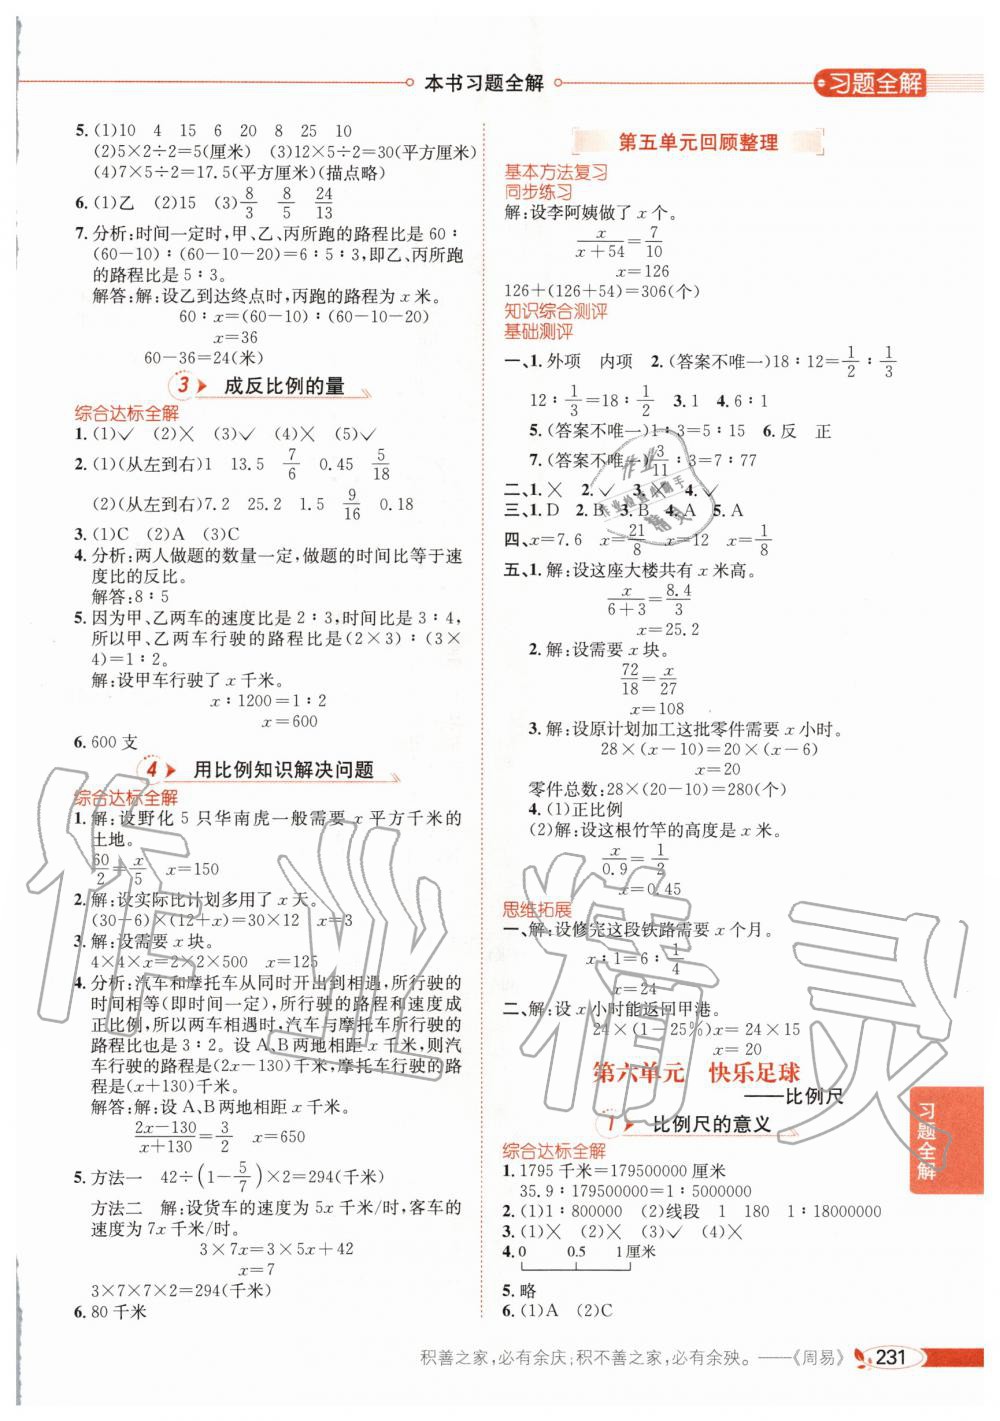 本书习题全解
习题全解
5. (1)10 4 15 6 20 8 25 10
(2)5×2÷2=5(厘米) (3)12×5÷2=30(平方厘米)
(4)7×5÷2=17.5(平方厘米)(描点略)
6. (1)乙 (2)15 (3)8/3 8/5 24/13
7. 分析:时间一定时,甲、乙、丙所跑的路程比是 60∶
(60-10)∶(60-10-20)=6∶5∶3,即乙、丙所跑
的路程比是 5∶3。
解答:解:设乙到达终点时,丙跑的路程为 x 米。
60∶x=(60-10)∶(60-10-20)
x=36
60-36=24(米)
3 成反比例的量
综合达标全解
1. (1)✓ (2)╳ (3)✓ (4)╳ (5)✓
2. (1)(从左到右)1 13.5 7/6 0.45 5/18
(2)(从左到右)7.2 25.2 1.5 9/16 0.18
3. (1)C (2)A (3)C
4. 分析:两人做题的数量一定,做题的时间比等于速
度比的反比。
解答:8∶5
5. 因为甲、乙两车的速度比是 2∶3,时间比是 3∶4,
所以甲、乙两车行驶的路程比是(2×3)∶(3×
4)=1∶2。
解:设甲车行驶了 x 千米。
x∶1200=1∶2
x=600
6. 600 支
4 用比例知识解决问题
综合达标全解
1. 解:设野化 5 只华南虎一般需要 x 平方千米的
土地。
60/2=x/5 x=150
2. 解:设实际比计划多用了 x 天。
(30-6)×(12+x)=30×12 x=3
3. 解:设需要 x 块。
4×4×x=2×2×500 x=125
4. 分析:汽车和摩托车从同时开出到相遇,所行驶的
时间相等(即时间一定),所行驶的路程和速度成
正比例,所以两车相遇时,汽车与摩托车所行驶的
路程比也是 3∶2。设 A、B 两地相距 x 千米,则汽
车行驶的路程是(2x-130)千米,摩托车行驶的路
程是(x+130)千米。
解答:解:设 A、B 两地相距 x 千米。
2x-130/x+130=3/2 x=650
5. 方法一 42÷(1-5/7)×2=294(千米)
方法二 解:设货车的速度为 5x 千米/时,客车的
速度为 7x 千米/时。
3×7x=3×5x+42
x=7
3×7×7×2=294(千米)
6. 80 千米
第五单元回顾整理
基本方法复习
同步练习
解:设李阿姨做了 x 个。
x/x+54=7/10
x=126
126+(126+54)=306(个)
知识综合测评
基础测评
一、1. 外项 内项 2. (答案不唯一)18∶12=1/2∶1/3
12∶1/3=18∶1/2 3. 1 4. 6∶1
5. (答案不唯一)1∶3=5∶15 6. 反 正
7. (答案不唯一)3/11∶3=7∶77
二、1. ╳ 2. ✓ 3. ╳ 4. ✓
三、1. D 2. B 3. B 4. A 5. A
四、x=7.6 x=21/8 x=12 x=1/8
五、1. 解:设这座大楼共有 x 米高。
x/6+3=8.4/3
x=25.2
2. 解:设需要 x 块。
72/18=x/27
x=108
3. 解:设原计划加工这批零件需要 x 小时。
28×(x-10)=20×(x-6)
x=20
零件总数:28×(20-10)=280(个)
4. (1)正比例
(2)解:设这根竹竿的高度是 x 米。
x/0.9=1/2
x=0.45
思维拓展
一、解:设修完这段铁路需要 x 个月。
x∶1=6∶1/4
x=24
二、解:设 x 小时能返回甲港。
24×(1-25%)x=24×15
x=20
第六单元 快乐足球
——比例尺
1 比例尺的意义
综合达标全解
1. 1795 千米=179500000 厘米
35.9∶179500000=1∶5000000
2. (1)1∶800000 (2)线段 1 180 1∶18000000
3. (1)╳ (2)╳ (3)✓ (4)╳
4. 0 0.5 1厘米
5. 略
6. (1)A (2)C
习题全解
积善之家,必有余庆;积不善之家,必有余殃。——《周易》
231
作业精灵